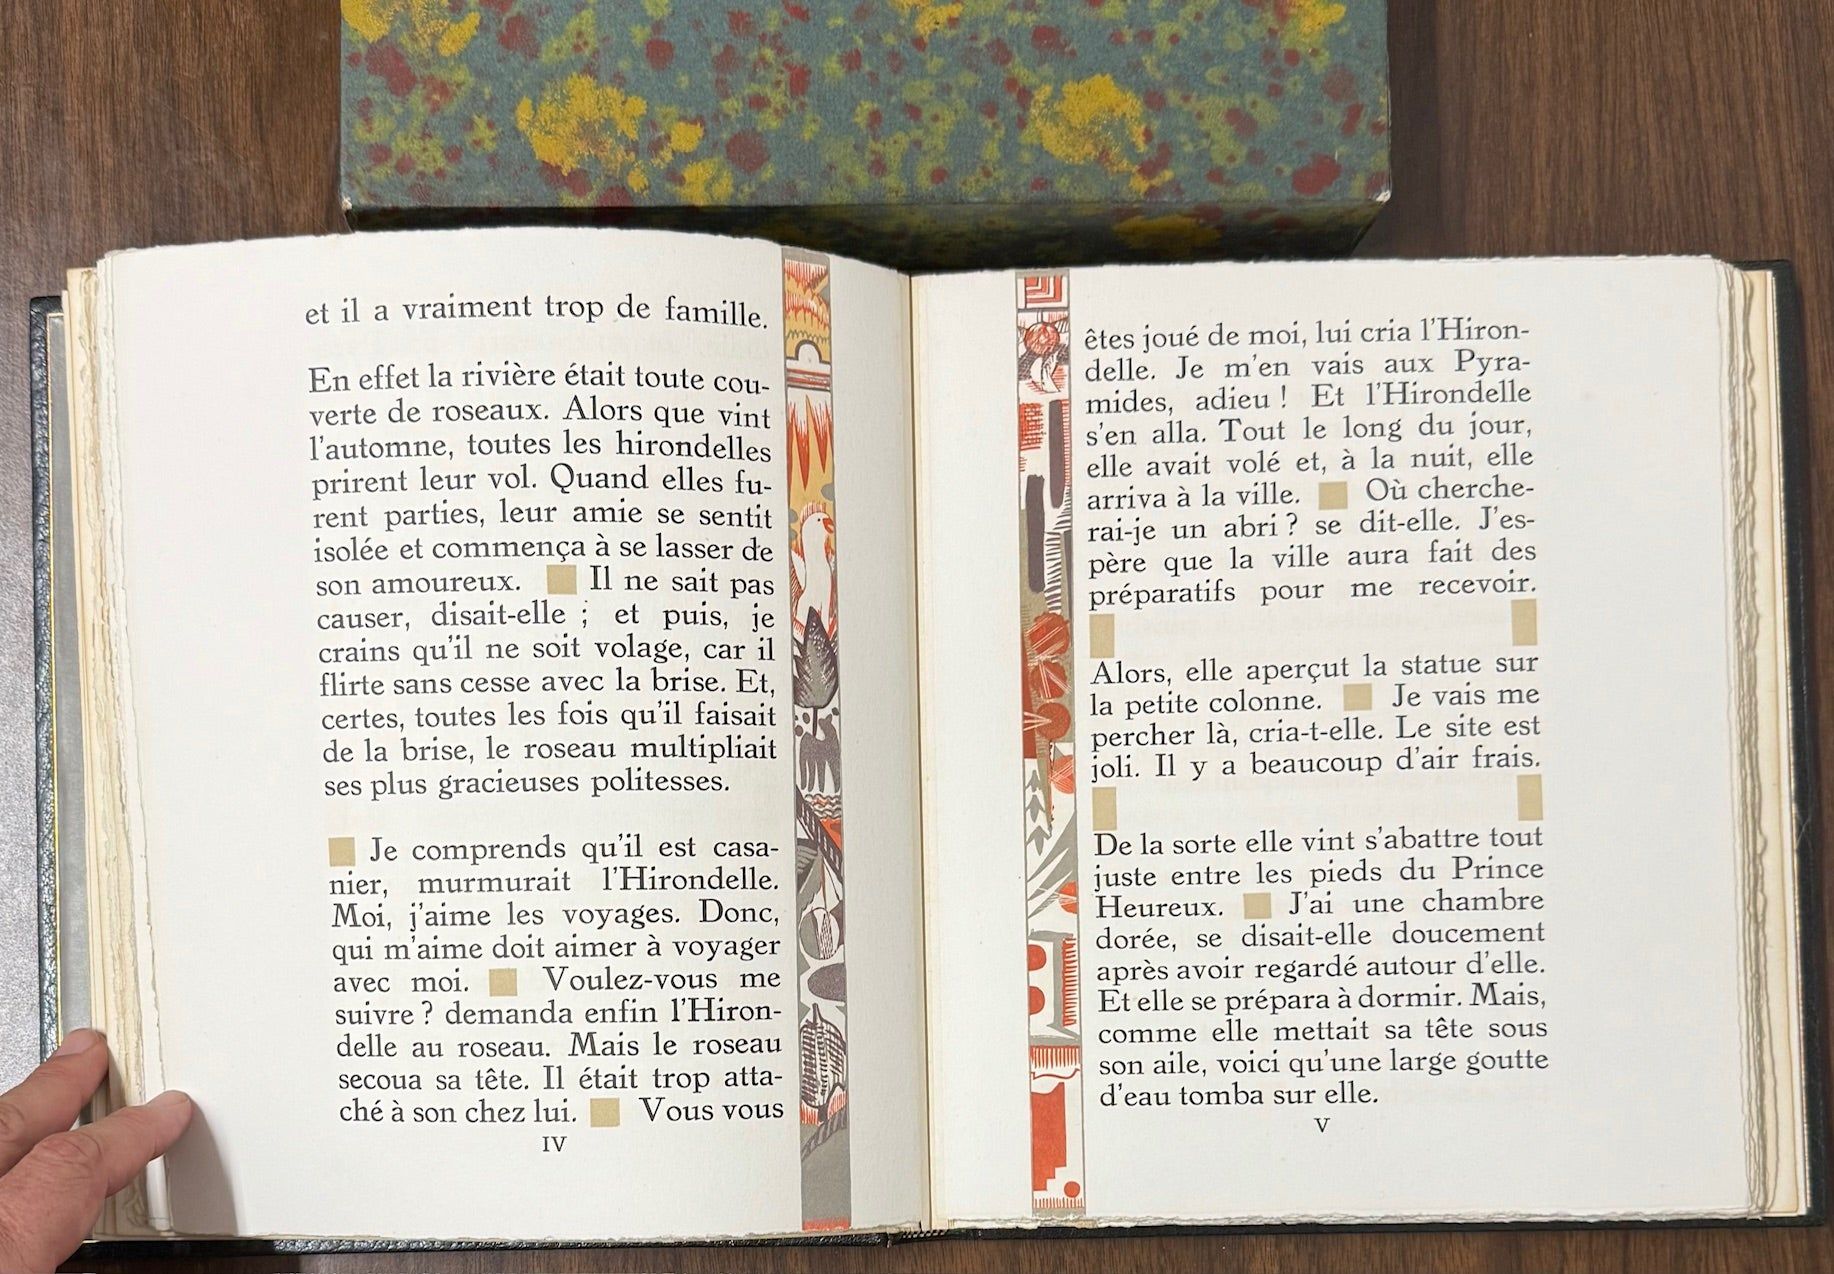 et il a vraiment trop de famille.
En effet la rivière était toute cou-
verte de roseaux. Alors que vint
l'automne, toutes les hirondelles
prirent leur vol. Quand elles fu-
rent parties, leur amie se sentit
isolée et commença à se lasser de
son amoureux. Il ne sait pas
causer, disait-elle ; et puis, je
crains qu'il ne soit volage, car il
flirte sans cesse avec la brise. Et,
certes, toutes les fois qu'il faisait
de la brise, le roseau multipliait
ses plus gracieuses politesses.
Je comprends qu'il est casa-
nier, murmurait l'Hirondelle.
Moi, j'aime les voyages. Donc,
qui m'aime doit aimer à voyager
avec moi. Voulez-vous me
suivre ? demanda enfin l'Hiron-
delle au roseau. Mais le roseau
secoua sa tête. Il était trop atta-
ché à son chez lui. Vous vous
IV
êtes joué de moi, lui cria l'Hiron-
delle. Je m'en vais aux Pyra-
mides, adieu ! Et l'Hirondelle
s'en alla. Tout le long du jour,
elle avait volé et, à la nuit, elle
arriva à la ville. Où cherche-
rai-je un abri ? se dit-elle. J'es-
père que la ville aura fait des
préparatifs pour me recevoir.
Alors, elle aperçut la statue sur
la petite colonne. Je vais me
percher là, cria-t-elle. Le site est
joli. Il y a beaucoup d'air frais.
De la sorte elle vint s'abattre tout
juste entre les pieds du Prince
Heureux. J'ai une chambre
dorée, se disait-elle doucement
après avoir regardé autour d'elle.
Et elle se prépara à dormir. Mais,
comme elle mettait sa tête sous
son aile, voici qu'une large goutte
d'eau tomba sur elle.
V